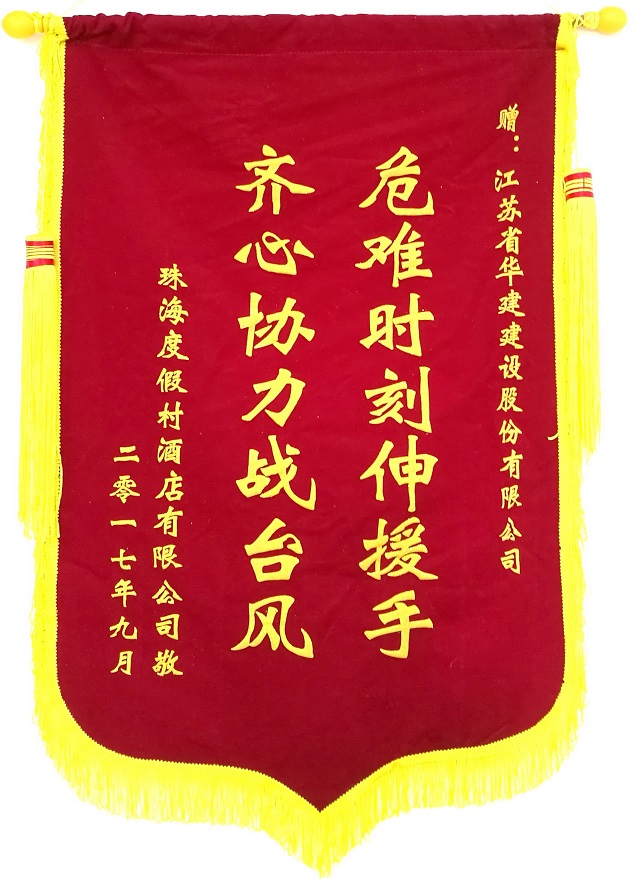 赠：江苏省华建建设股份有限公司
危难时刻伸援手
齐心协力战台风
珠海度假村酒店有限公司敬
二零一七年九月